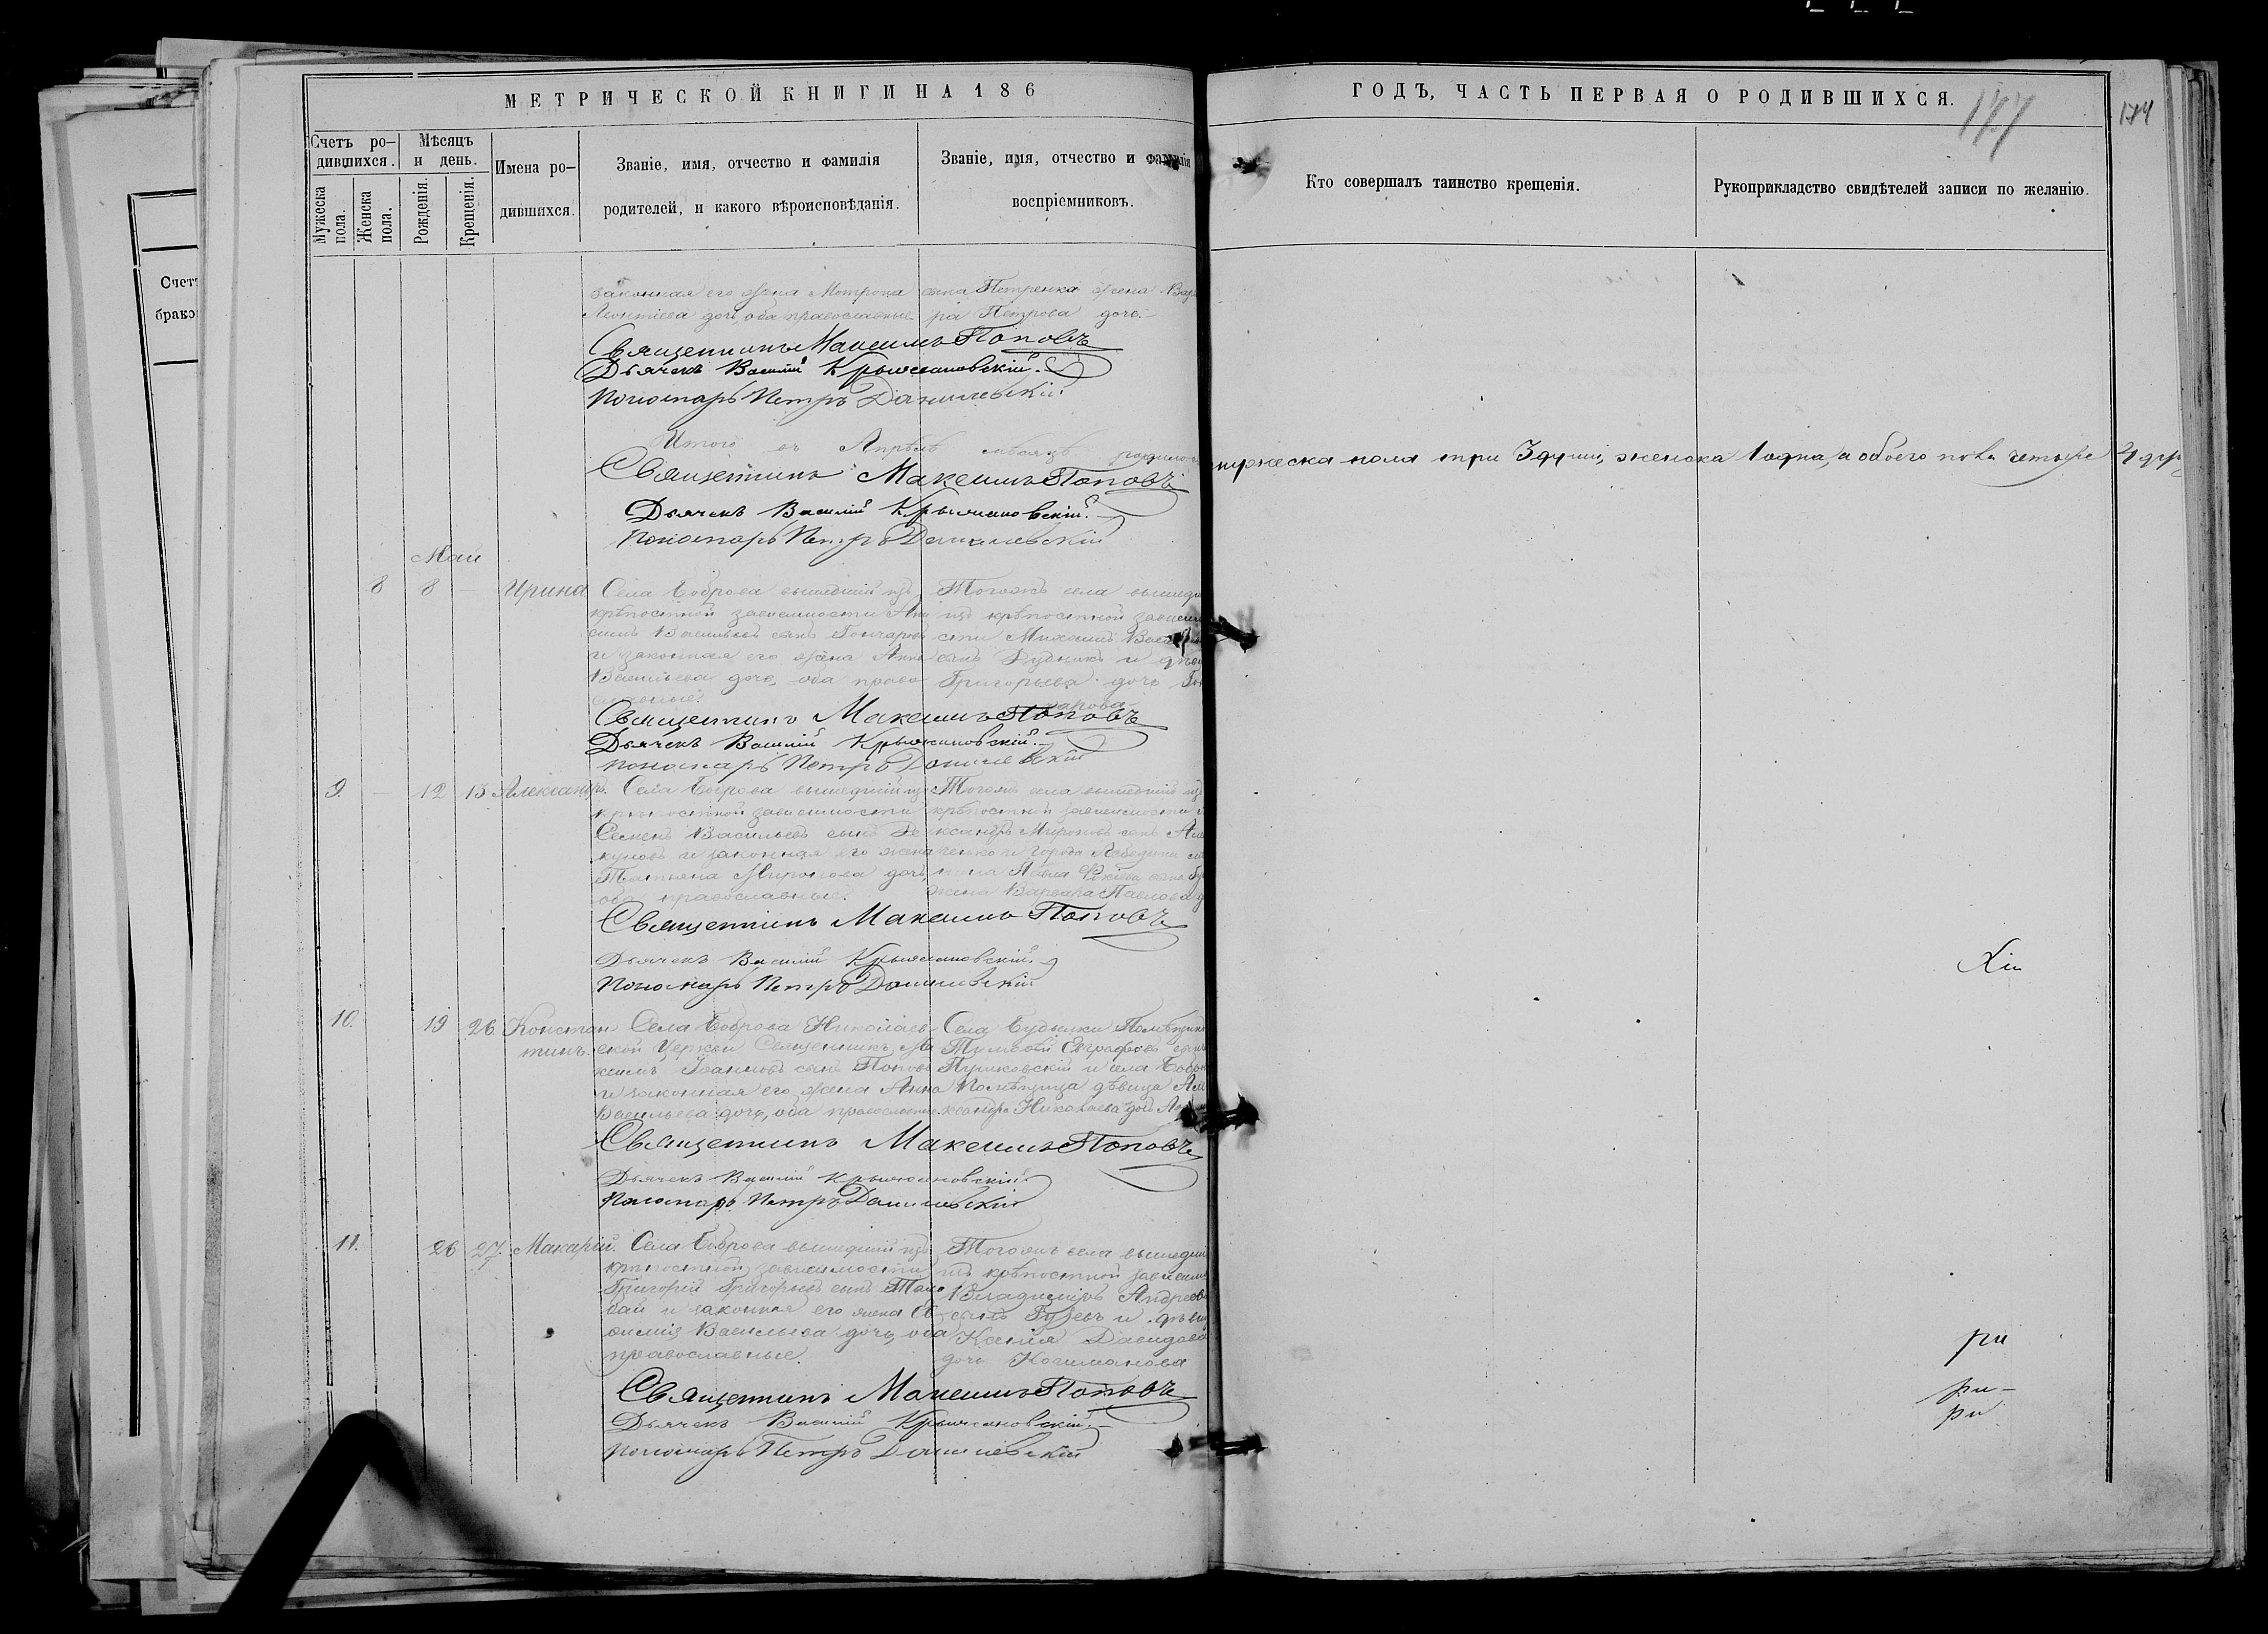 МЕТРИЧЕСКОЙ КНИГИ НА 186
ГОДЪ, ЧАСТЬ ПЕРВАЯ О РОДИВШИХСЯ.
177
174
Счетъ ро-
дившихся.
Мѣсяцъ
и день.
Имена ро-
дившихся.
Званіе, имя, отчество и фамилія
родителей, и какого вѣроисповѣданія.
Званіе, имя, отчество и фамилія
воспріемниковъ.
Кто совершалъ таинство крещенія.
Рукоприкладство свидѣтелей записи по желанію.
Мужеска
пола.
Женска
пола.
Рожденія.
Крещенія.
Счетъ
брако
законная его жена Мотрона
Леонтіева дочь, оба православные
сына Петренка жена Вар
ра Петрова дочь.
Священникъ Максимъ Поповъ
Дьячекъ Василій Крыжановскій.
Пономарь Петръ Данилевскій
Итого въ Апрѣлѣ мѣсяцѣ родилось мужеска пола три 3 души, женска 1 одна, а обоего пола четыре 4 душ
Священникъ Максимъ Поповъ
Дьячекъ Василій Крыжановскій.
Пономарь Петръ Данилевскій
Май
8 8 — Ирина
Села Боброва вышедшій изъ
крѣпостной зависимости Ани
симъ Васильевъ сынъ Гончаровъ
и законная его жена Анна
Васильева дочь, оба право
славные.
Тогожъ села вышедш
изъ крѣпостной зависим
сти Михаилъ Василь
сынъ Дудникъ и дѣви
Григорьева дочь Гон
чарова
Священникъ Максимъ Поповъ
Дьячекъ Василій Крыжановскій.
Пономарь Петръ Данилевскій
9. — 12 13 Александръ.
Села Боброва вышедшій изъ
крѣпостной зависимости
Семенъ Васильевъ сынъ
куновъ и законная его жена
Татьяна Миронова дочь,
оба православные.
Тогожъ села вышедшій изъ
крѣпостной зависимости
ксандръ Мироновъ сынъ
и города Лебедина
Павла сына
жена Варвара Павлова д
Священникъ Максимъ Поповъ
Дьячекъ Василій Крыжановскій.
Пономарь Петръ Данилевскій
10. 19 26 Констан
тинъ.
Села Боброва Николаев
ской Церкви Священникъ Ма
ксимъ Іоанновъ сынъ Поповъ
и законная его жена Анна
Васильева дочь, оба православные.
Села Будылки Помѣщикъ
Тимофей Евграфовъ сынъ
и села Бобро
Помѣщица дѣвица Але
ксандра Николаева дочь
Священникъ Максимъ Поповъ
Дьячекъ Василій Крыжановскій
Пономарь Петръ Данилевскій
11. 26 27. Макарій.
Села Боброва вышедшій изъ
крѣпостной зависимости
Григорій Григорьевъ сынъ
бай и законная его жена Ев
фимія Васильева дочь, оба
православные.
Тогожъ села вышедшій
изъ крѣпостной зависим
Владиміръ Андреевъ
сынъ Гузевъ и дѣвиц
Ксенія Давидова
дочь
Священникъ Максимъ Поповъ
Дьячекъ Василій Крыжановскій
Пономарь Петръ Данилевскій